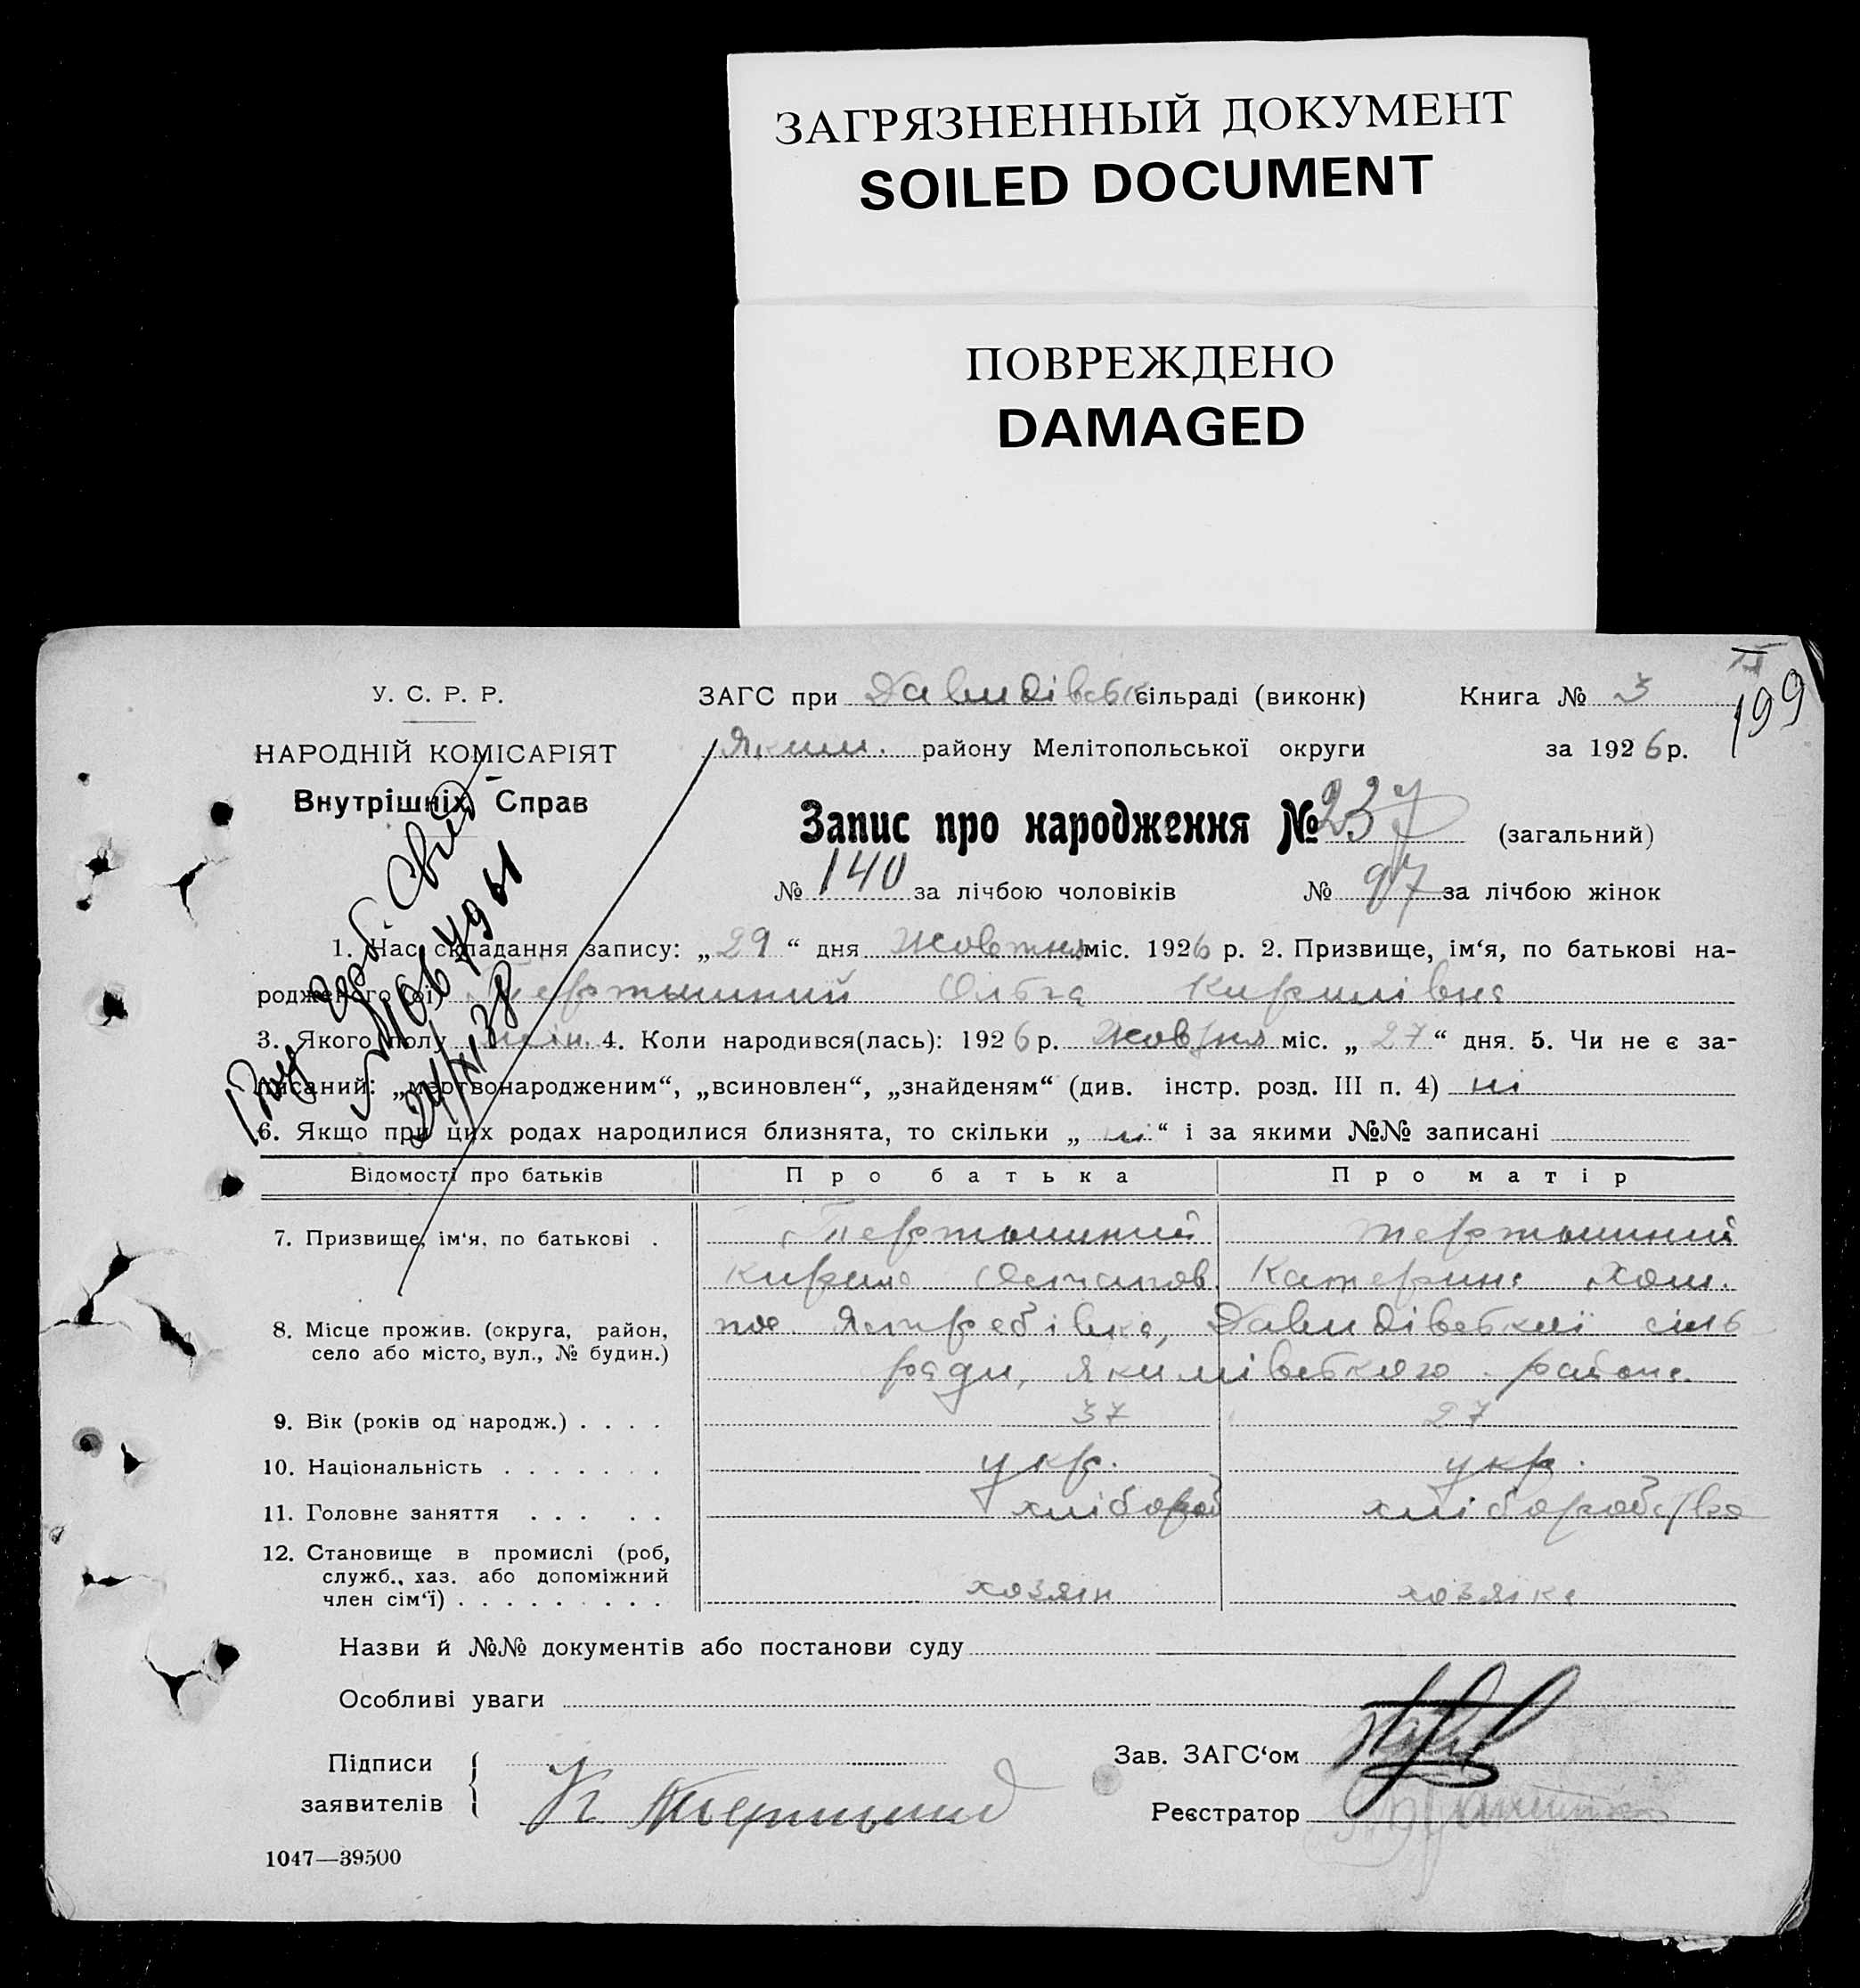 ЗАГРЯЗНЕННЫЙ ДОКУМЕНТ
SOILED DOCUMENT
ПОВРЕЖДЕНО
DAMAGED
199
У. С. Р. Р.
НАРОДНІЙ КОМІСАРІЯТ
Внутрішніх Справ
ЗАГС при Давидівськ сільраді (виконк) Книга № 3
Яким. району Мелітопольської округи за 1926 р.
Запис про народження № 237 (загальний)
№ 140 за лічбою чоловіків № 97 за лічбою жінок
1. Час складання запису: „29“ дня Жовтня міс. 1926 р. 2. Призвище, ім‘я, по батькові на-
родженого (ої) Тертишний Ольга Кирилівна
3. Якого полу жін. 4. Коли народився(лась): 1926 р. Жовтня міс. „27“ дня. 5. Чи не є за-
писаний: „мертвонародженим“, „всиновлен“, „знайденям“ (див. інстр. розд. III п. 4) ні
6. Якщо при цих родах народилися близнята, то скільки „ні“ і за якими №№ записані
Відомості про батьків Про батька Про матір
7. Призвище, ім‘я, по батькові . Тертишний Тертишний
Кирило Остапов. Катерина Хом.
8. Місце прожив. (округа, район, пос. Ястребівка, Давидівської сіль
село або місто, вул., № будин.) ради, Якимівського района.
9. Вік (років од народж.) . . . . 37 27
10. Національність . . . . . . . укр. укр.
11. Головне заняття . . . . . хлібороб хліборобство
12. Становище в промислі (роб,
служб., хаз. або допоміжний
член сім‘ї) . . . . . . . . . хозяін хозяіка
Назви й №№ документів або постанови суду
Особливі уваги
Підписи
заявителів К. Тертишний
Зав. ЗАГС‘ом
Реєстратор
1047—39500